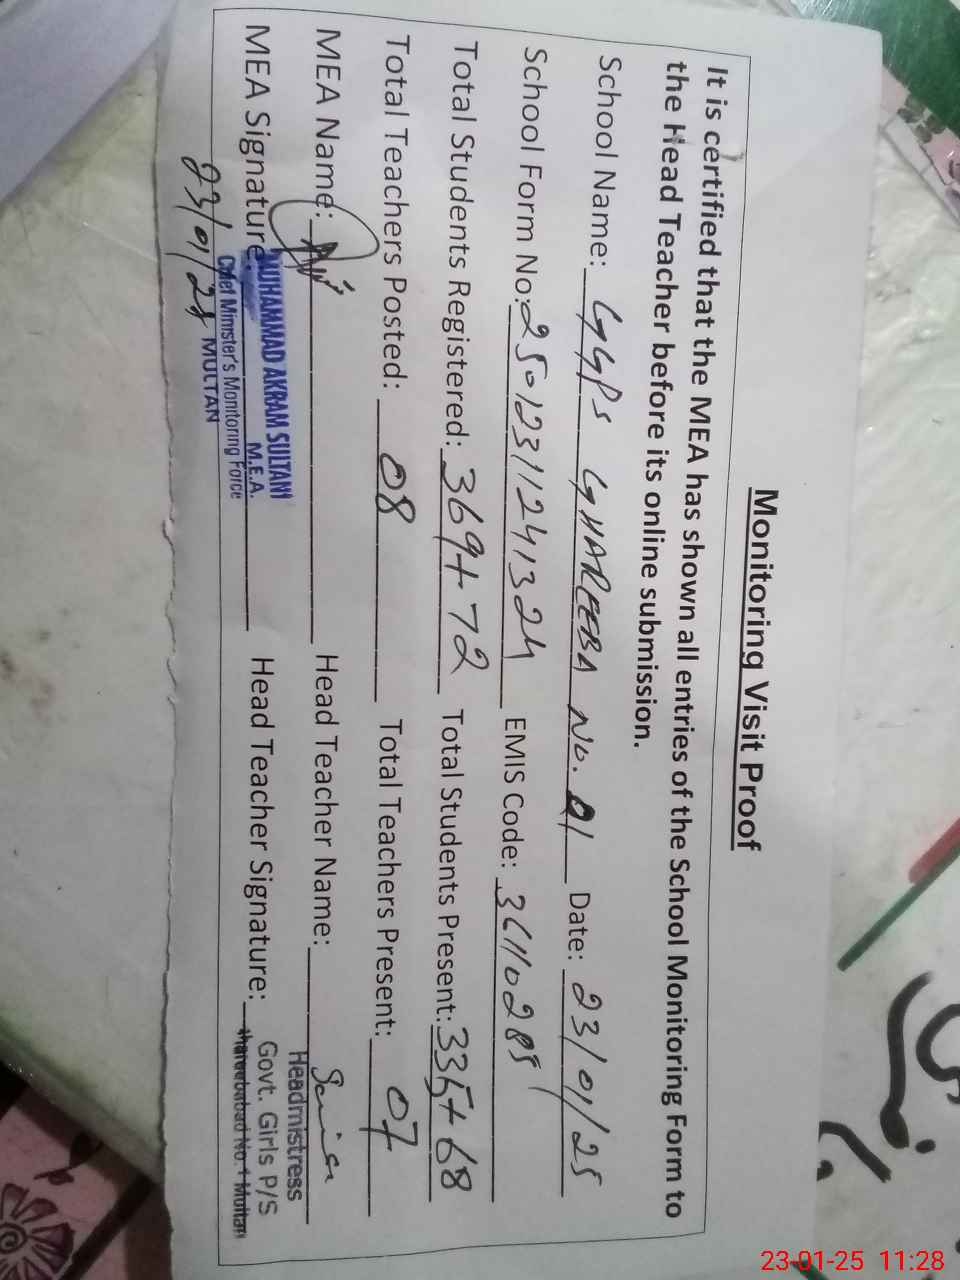 Monitoring Visit Proof
It is certified that the MEA has shown all entries of the School Monitoring Form to
the Head Teacher before its online submission.
School Name: GGPS GHAREEBA No. 01 Date: 23/01/25
School Form No: 25012311241324 EMIS Code: 36110285
Total Students Registered: 369+72 Total Students Present: 335+68
Total Teachers Posted: 08 Total Teachers Present: 07
MEA Name: Head Teacher Name:
MEA Signature: Head Teacher Signature:
MUHAMMAD AKRAM SULTANI
M.E.A.
Chief Minister's Monitoring Force
MULTAN
23/01/25
Headmistress
Govt. Girls P/S
No.1 Multan
23-01-25 11:28